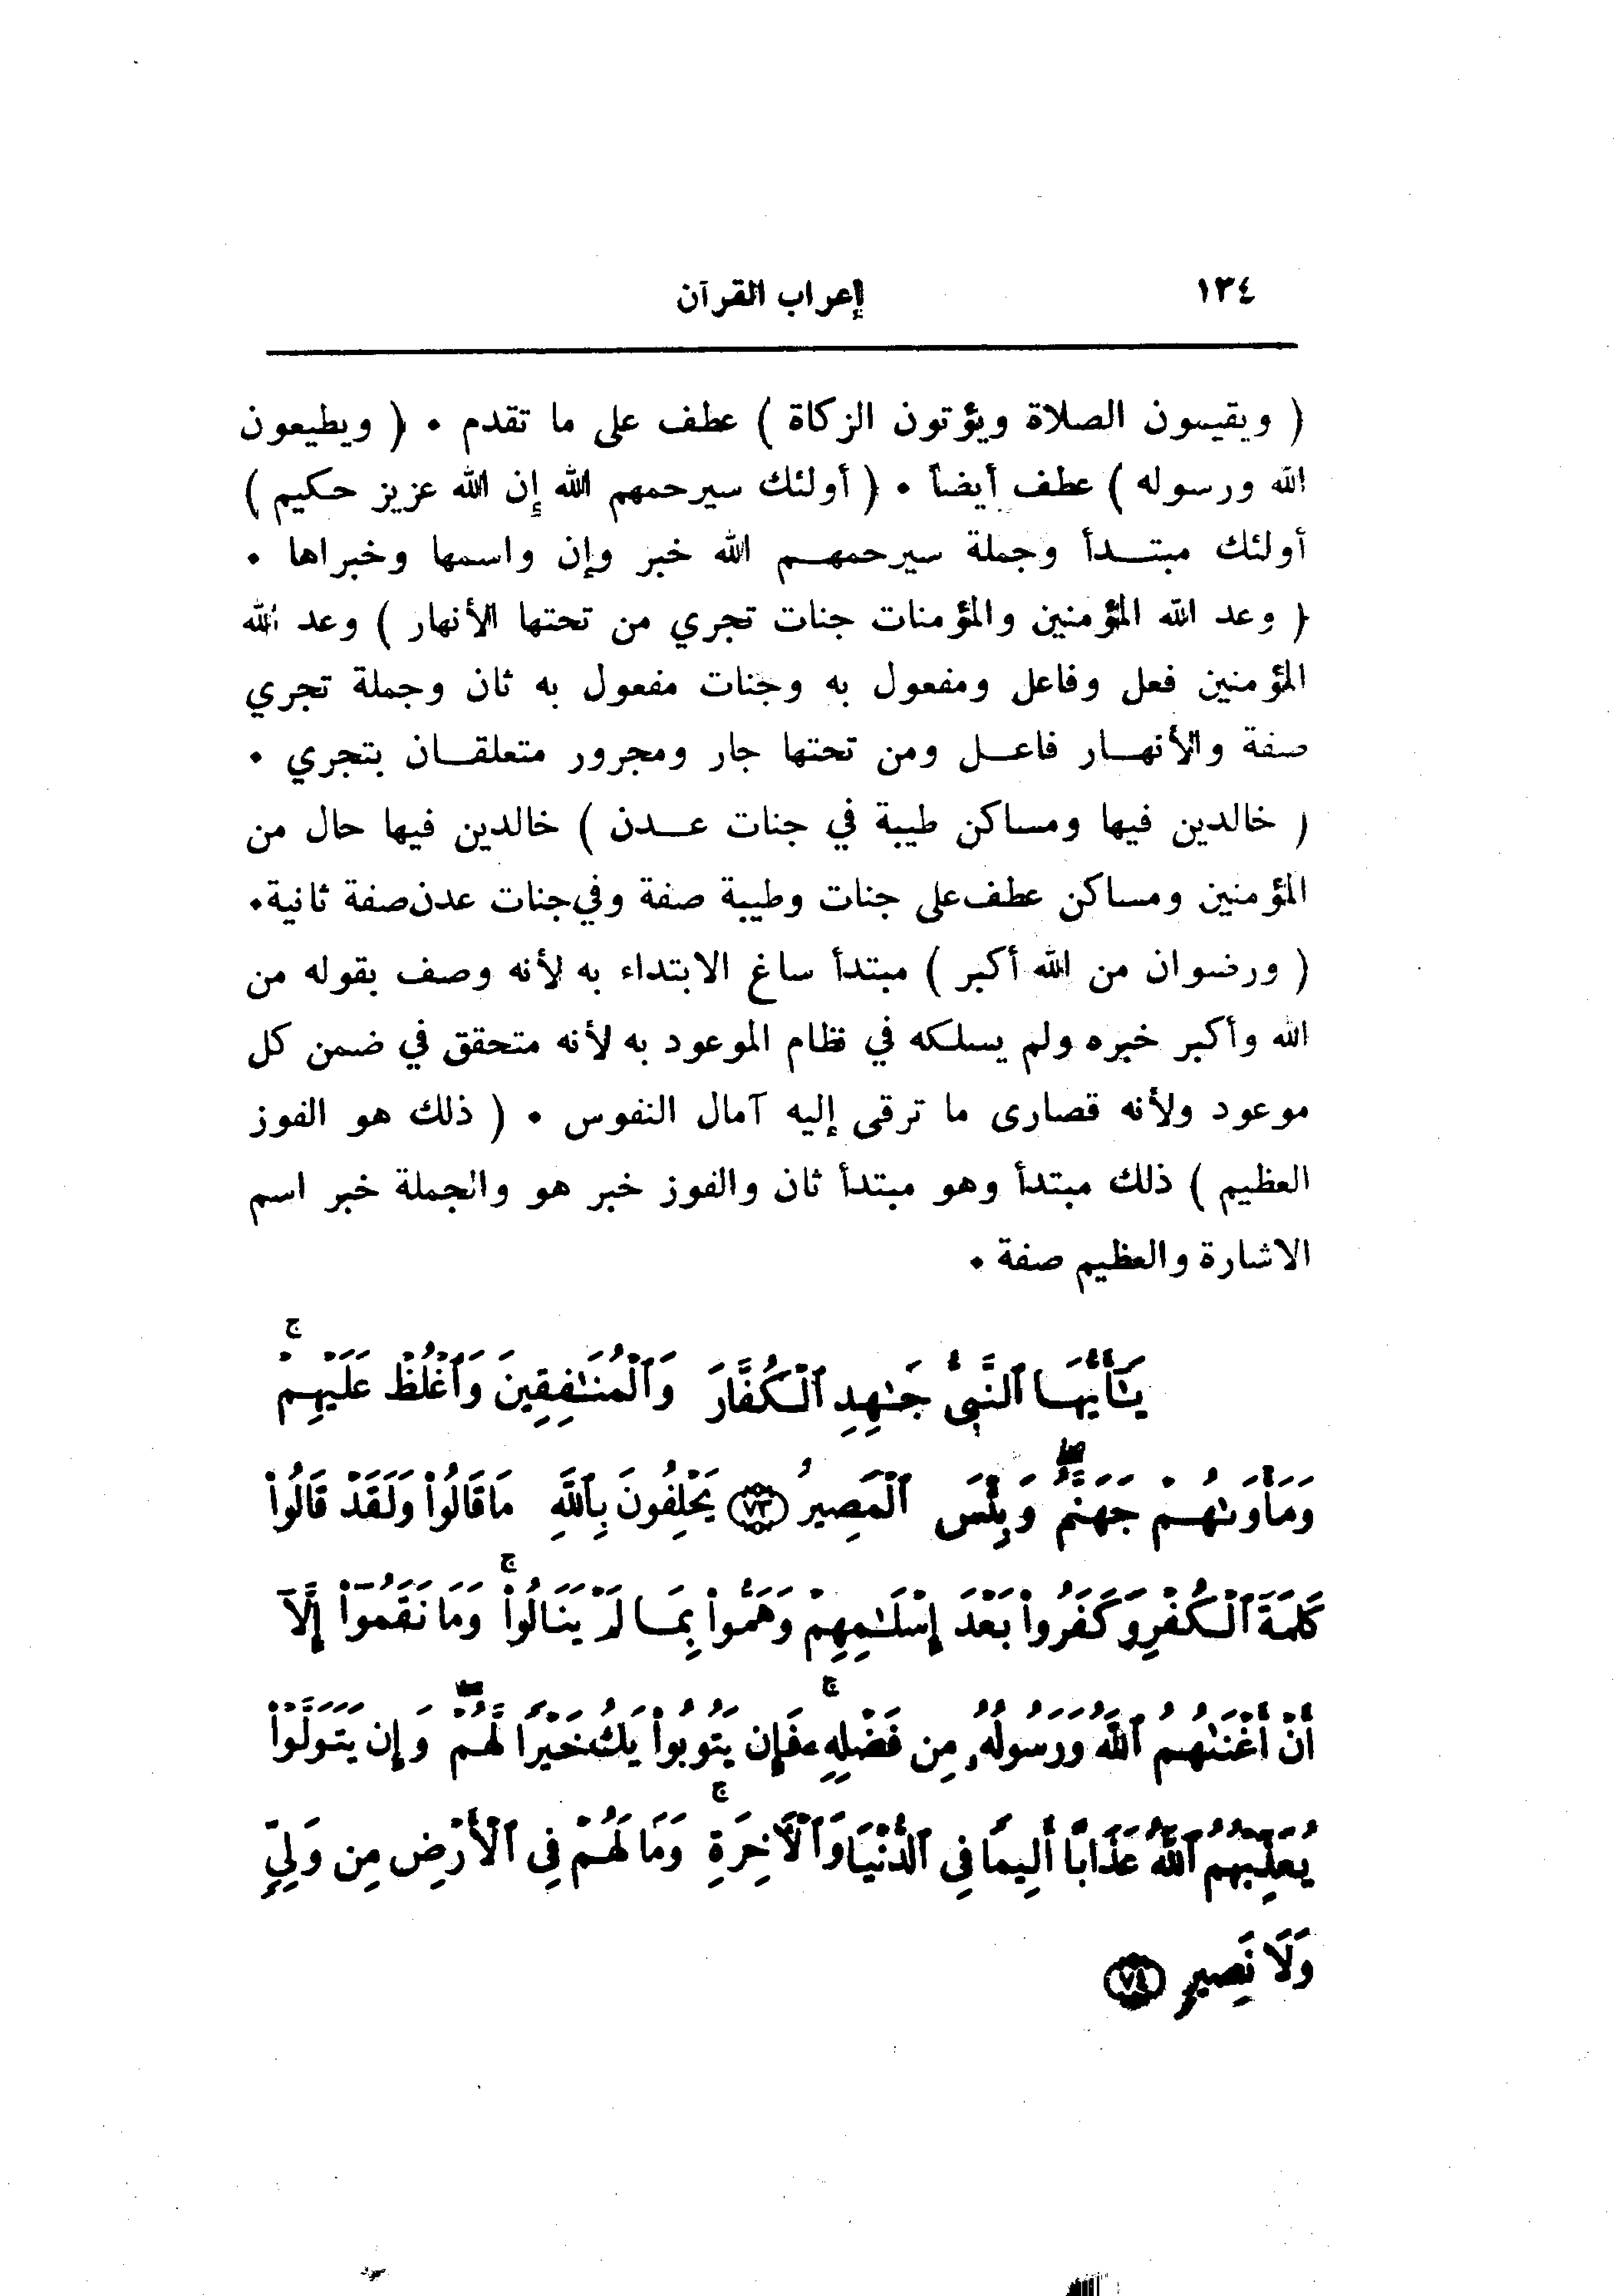 ١٣٤
إعراب القرآن
( ويقيمون الصلاة ويؤتون الزكاة ) عطف على ما تقدم ٠ ( ويطيعون
الله ورسوله ) عطف أيضاً ٠ ( أولئك سيرحمهم الله إن الله عزيز حكيم )
أولئك مبتدأ وجملة سيرحمهم الله خبر وإن واسمها وخبراها ٠
( وعد الله المؤمنين والمؤمنات جنات تجري من تحتها الأنهار ) وعد الله
المؤمنين فعل وفاعل ومفعول به وجنات مفعول به ثان وجملة تجري
صفة والأنهار فاعل ومن تحتها جار ومجرور متعلقان بتجري ٠
( خالدين فيها ومساكن طيبة في جنات عدن ) خالدين فيها حال من
المؤمنين ومساكن عطف على جنات وطيبة صفة وفي جنات عدن صفة ثانية٠
( ورضوان من الله أكبر ) مبتدأ ساغ الابتداء به لأنه وصف بقوله من
الله وأكبر خبره ولم يسلكه في نظام الموعود به لأنه متحقق في ضمن كل
موعود ولأنه قصارى ما ترقى إليه آمال النفوس ٠ ( ذلك هو الفوز
العظيم ) ذلك مبتدأ وهو مبتدأ ثان والفوز خبر هو والجملة خبر اسم
الاشارة والعظيم صفة ٠
يَـٰٓأَيُّهَا ٱلنَّبِىُّ جَـٰهِدِ ٱلْكُفَّارَ وَٱلْمُنَـٰفِقِينَ وَٱغْلُظْ عَلَيْهِمْ ۚ
وَمَأْوَىٰهُمْ جَهَنَّمُ ۖ وَبِئْسَ ٱلْمَصِيرُ ﴿٧٣﴾ يَحْلِفُونَ بِٱللَّهِ مَا قَالُوا۟ وَلَقَدْ قَالُوا۟
كَلِمَةَ ٱلْكُفْرِ وَكَفَرُوا۟ بَعْدَ إِسْلَـٰمِهِمْ وَهَمُّوا۟ بِمَا لَمْ يَنَالُوا۟ ۚ وَمَا نَقَمُوٓا۟ إِلَّآ
أَنْ أَغْنَىٰهُمُ ٱللَّهُ وَرَسُولُهُۥ مِن فَضْلِهِۦ ۚ فَإِن يَتُوبُوا۟ يَكُ خَيْرًا لَّهُمْ ۖ وَإِن يَتَوَلَّوْا۟
يُعَذِّبْهُمُ ٱللَّهُ عَذَابًا أَلِيمًا فِى ٱلدُّنْيَا وَٱلْـَٔاخِرَةِ ۚ وَمَا لَهُمْ فِى ٱلْأَرْضِ مِن وَلِىٍّ
وَلَا نَصِيرٍ ﴿٧٤﴾